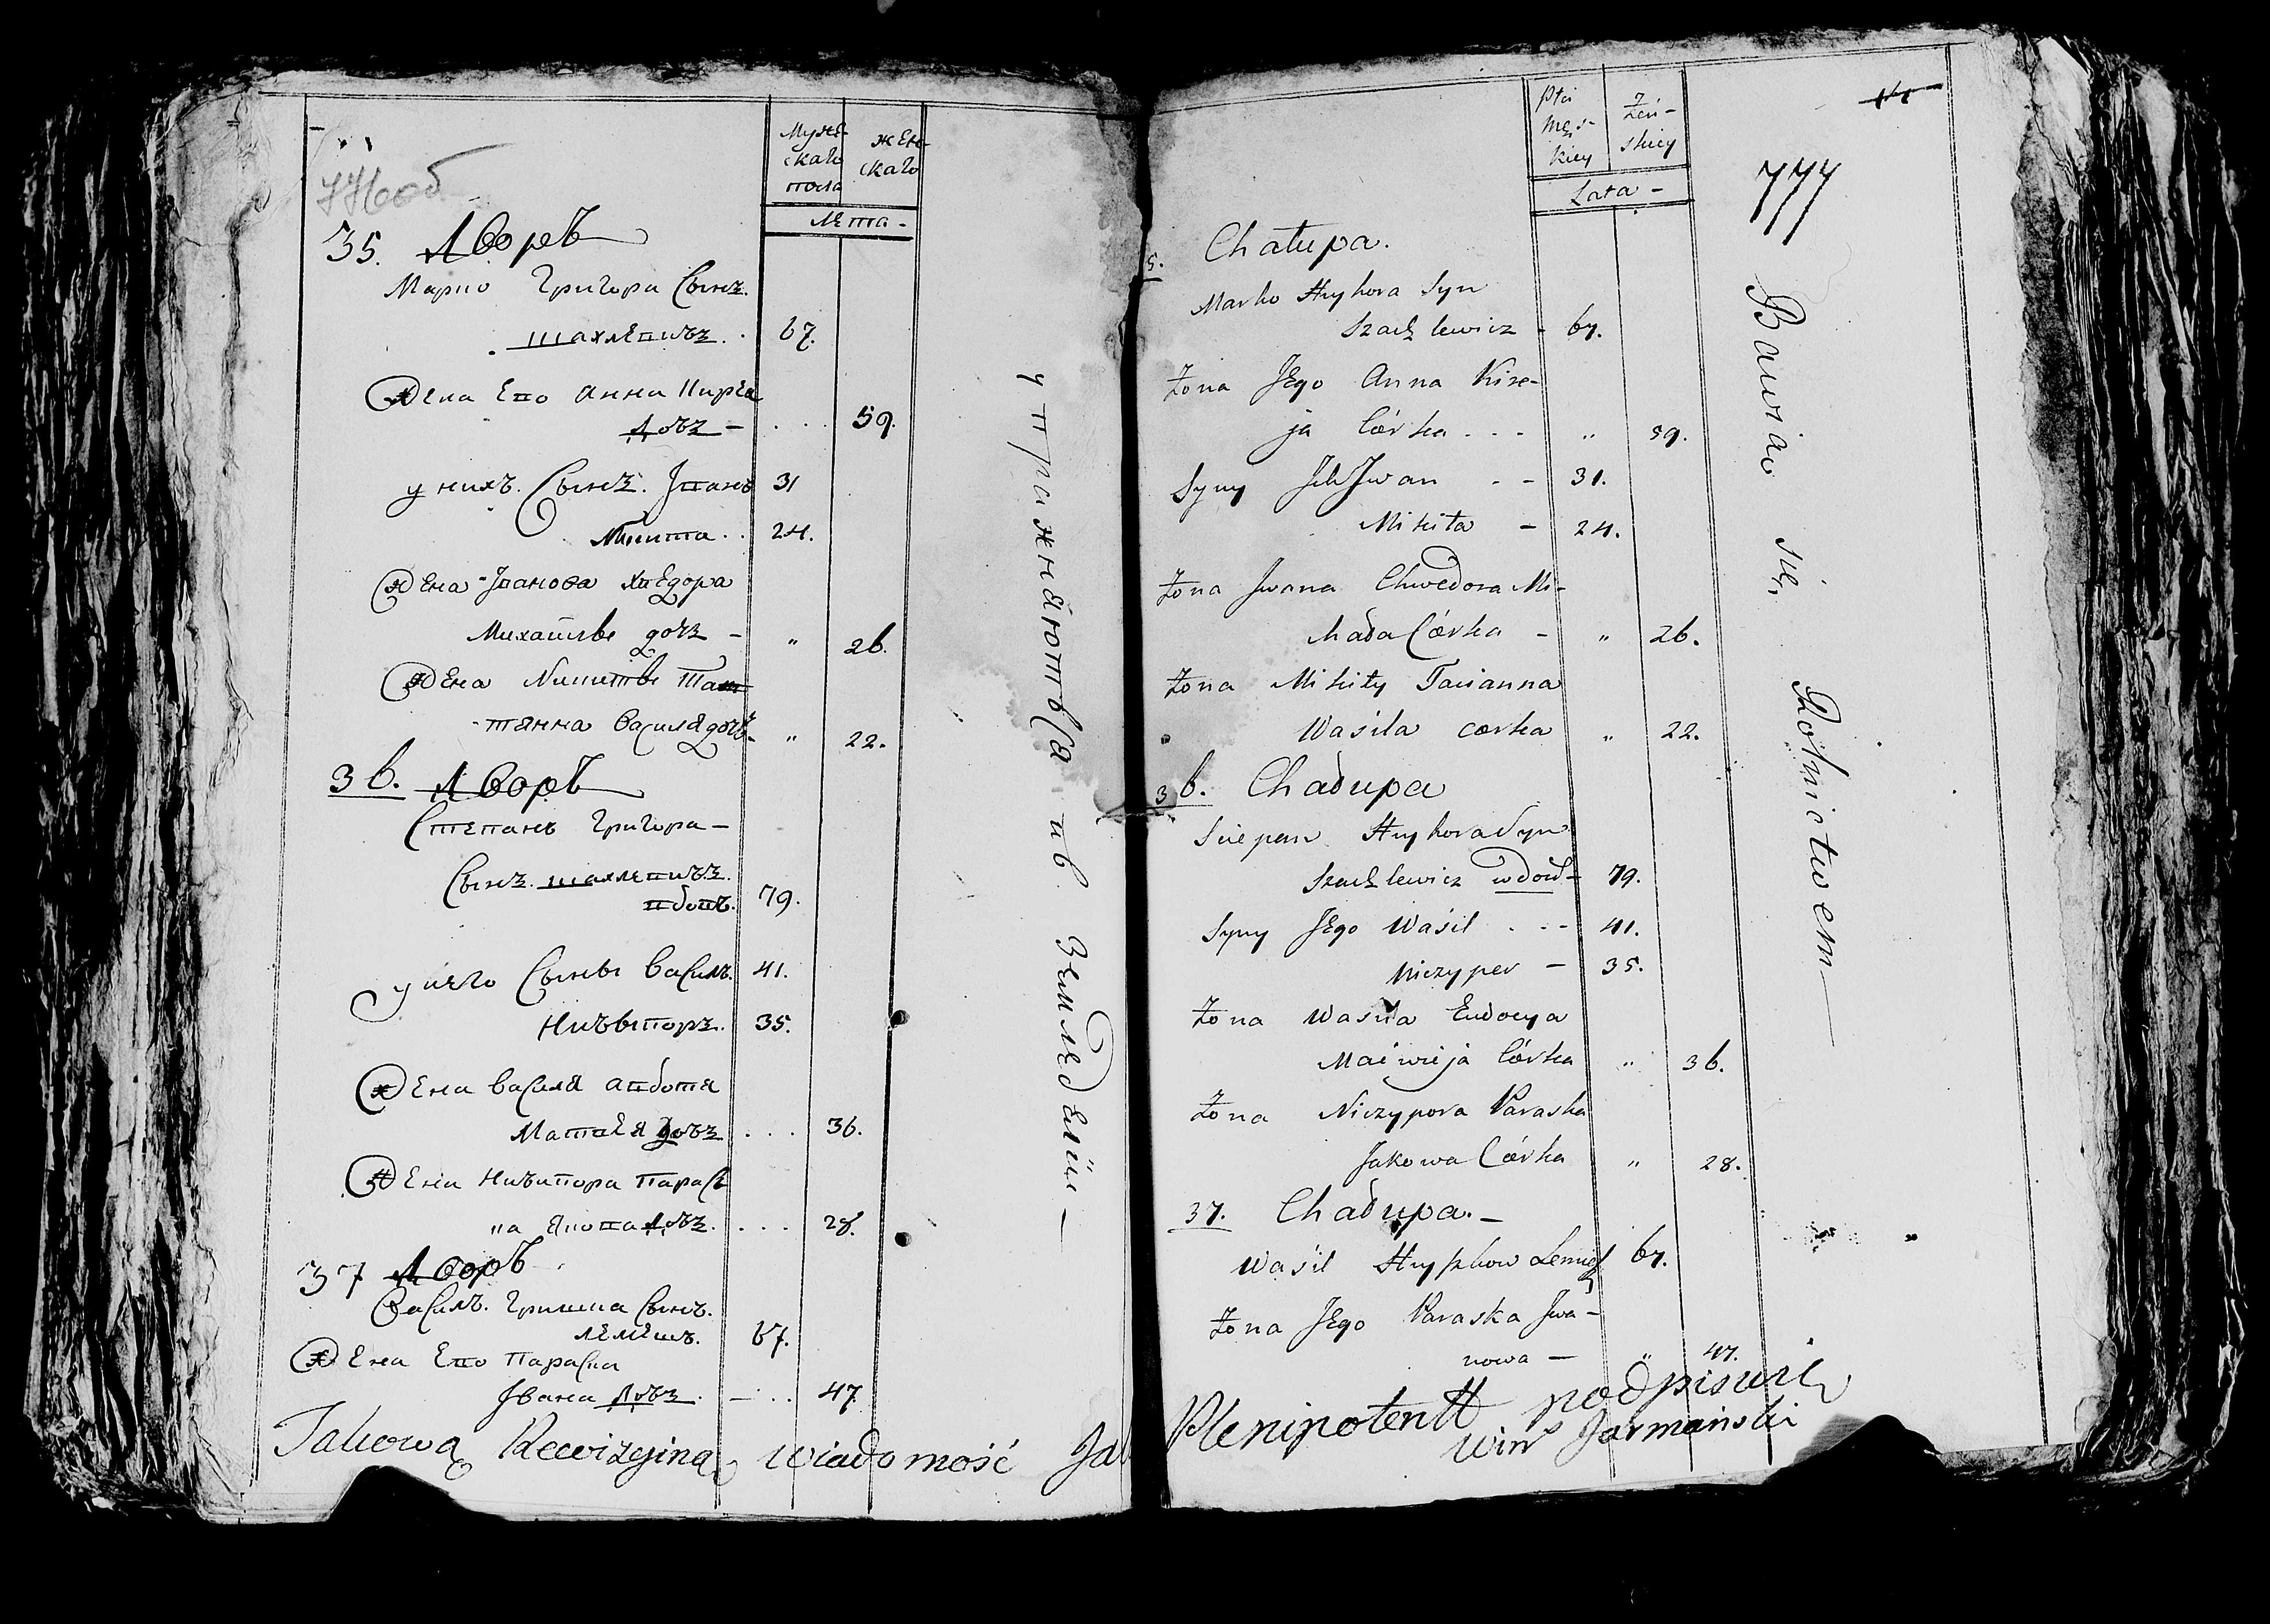 776об
Муже-
скаго
пола
жен-
скаго
лѣта -
35. Дворъ
Марко Григора Сынъ
шахлевичъ . 67.
жена Его анна Кирея
дочь - . . . 59.
у нихъ Сынъ Іванъ 31
Микита . . 24.
жена Іванова хведора
Михайлы дочь - " 26.
жена Микиты Тат
тянна василя дочь - " 22.
36. Дворъ
Степанъ Григора -
Сынъ шахлевичъ
вдовъ. 79.
у него Сыны василь. 41.
Ничыпоръ. 35.
жена василя авдотя
Матвея дочь . . . 36.
жена Ничипора Парас
ка Якова дочь . . . . 28.
37 Дворъ
василь. Гришка Сынъ.
лемешъ. 67.
жена Его Параска
Івана дочь . - . . 47.
упражняютъся въ земледелии -
Takową Rewizyiną wiadomość Ja
Płci
męs-
kiey
żeń-
skiey
Lata -
777
5. Chałupa.
Marko Hryhora Syn
Szachlewicz - 67.
żona Jego Anna Kire-
ja Córka . . - " 59.
Syny Ich Jwan . - 31.
Mikita - 24.
żona Jwana Chwedora Mi-
chała Córka - " 26.
żona Mikity Tacianna
Wasila corka " 22.
36. Chałupa
Sciepan Hryhora Syn
Szachlewicz wdow - 79.
Syny Jego Wasil . . - 41.
Niczyper - 35.
żona Wasila Eudocya
Maćwieja Córka " 36.
żona Niczypora Paraska
Jakowa Córka " 28.
37. Chałupa. -
Wasil Hryszkow Lemesz 67.
żona Jego Paraska Jwa-
nowa - " 47.
Bawiąc się Rolnictwem -
Plenipotentt podpisuię
Win Jarmański